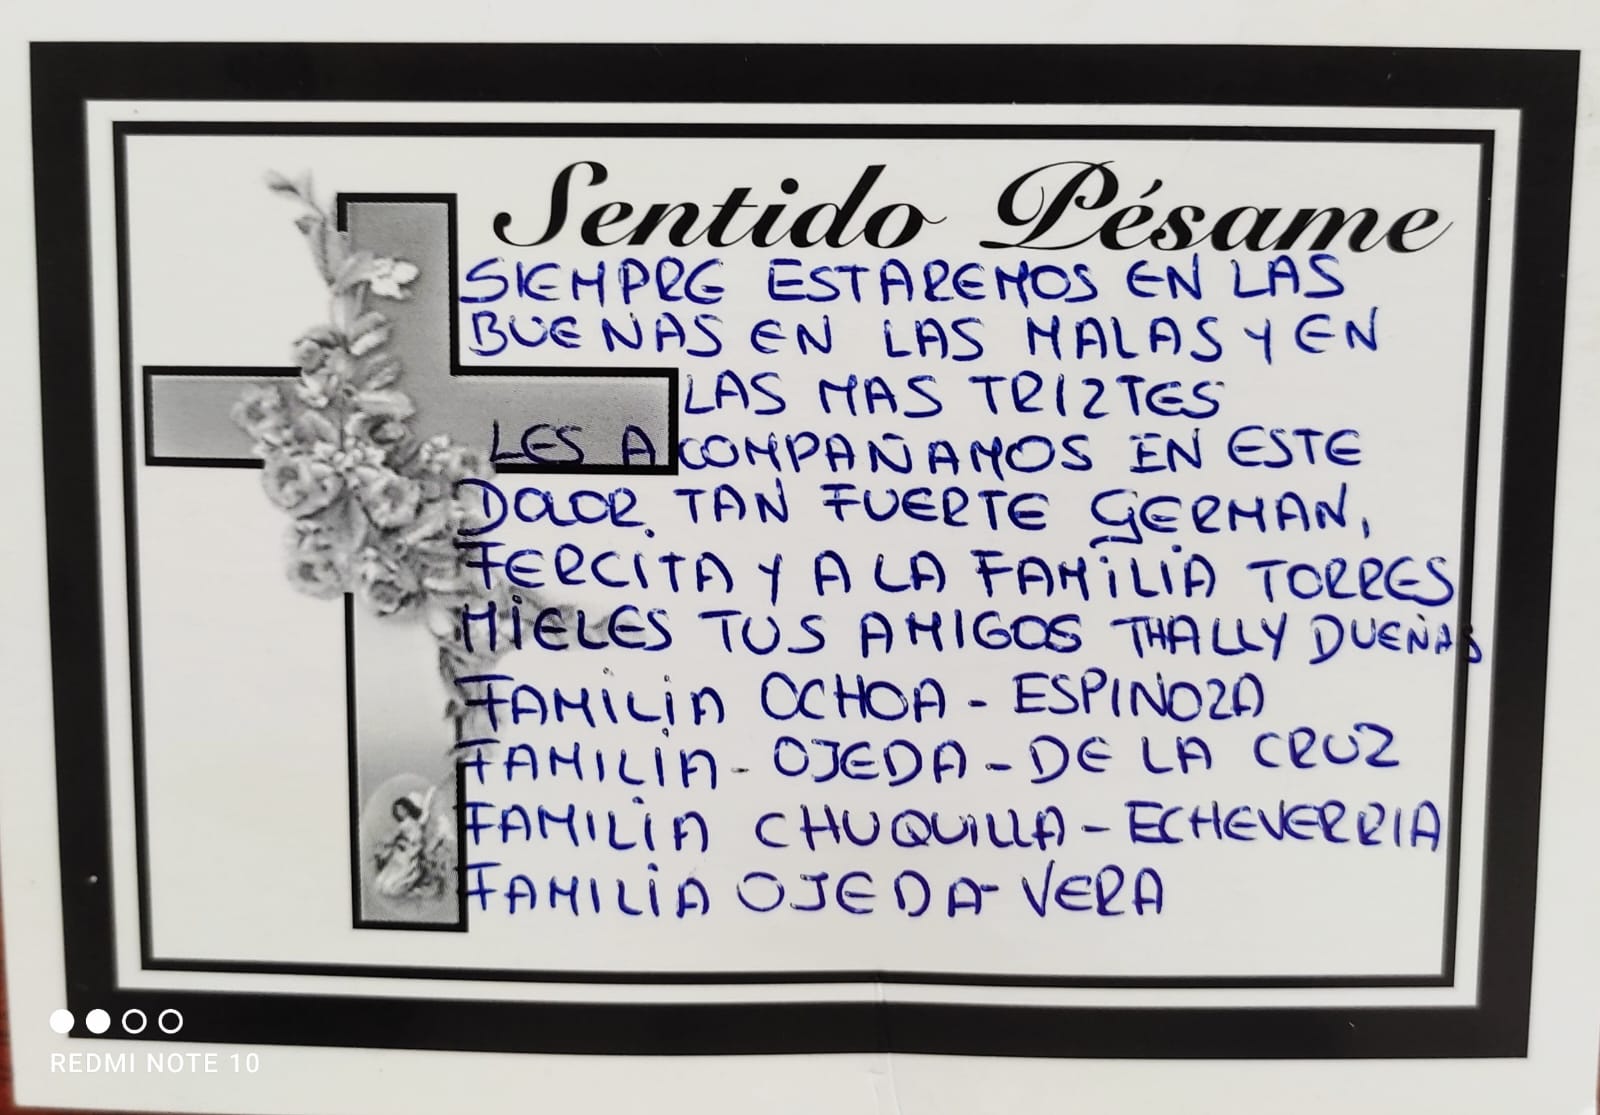 Sentido Pésame
SIEMPRE ESTAREMOS EN LAS
BUENAS EN LAS MALAS Y EN
LAS MAS TRIZTES
LES ACOMPAÑAMOS EN ESTE
DOLOR. TAN FUERTE GERMAN,
FERCITA Y A LA FAMiLIA TORRES
MiELES TUS AMIGOS THALLY DUEÑAS
FAMILiA OCHOA - ESPINOZA
FAMILiA - OJEDA - DE LA CRUZ
FAMILiA CHUQUILLA - ECHEVERRIA
FAMILiA OJEDA - VERA
REDMI NOTE 10